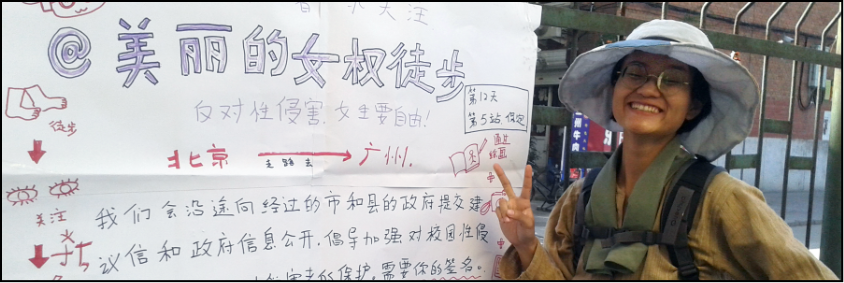 关注
@美丽的女权徒步
反对性侵害,女生要自由!
第12天
第5站 保定
徒步
北京 走路去 广州.
通过
绘画
关注
我们会沿途向经过的市和县的政府提交建
议信和政府信息公开,倡导加强对校园性侵
的保护,需要你的签名。
州牛肉